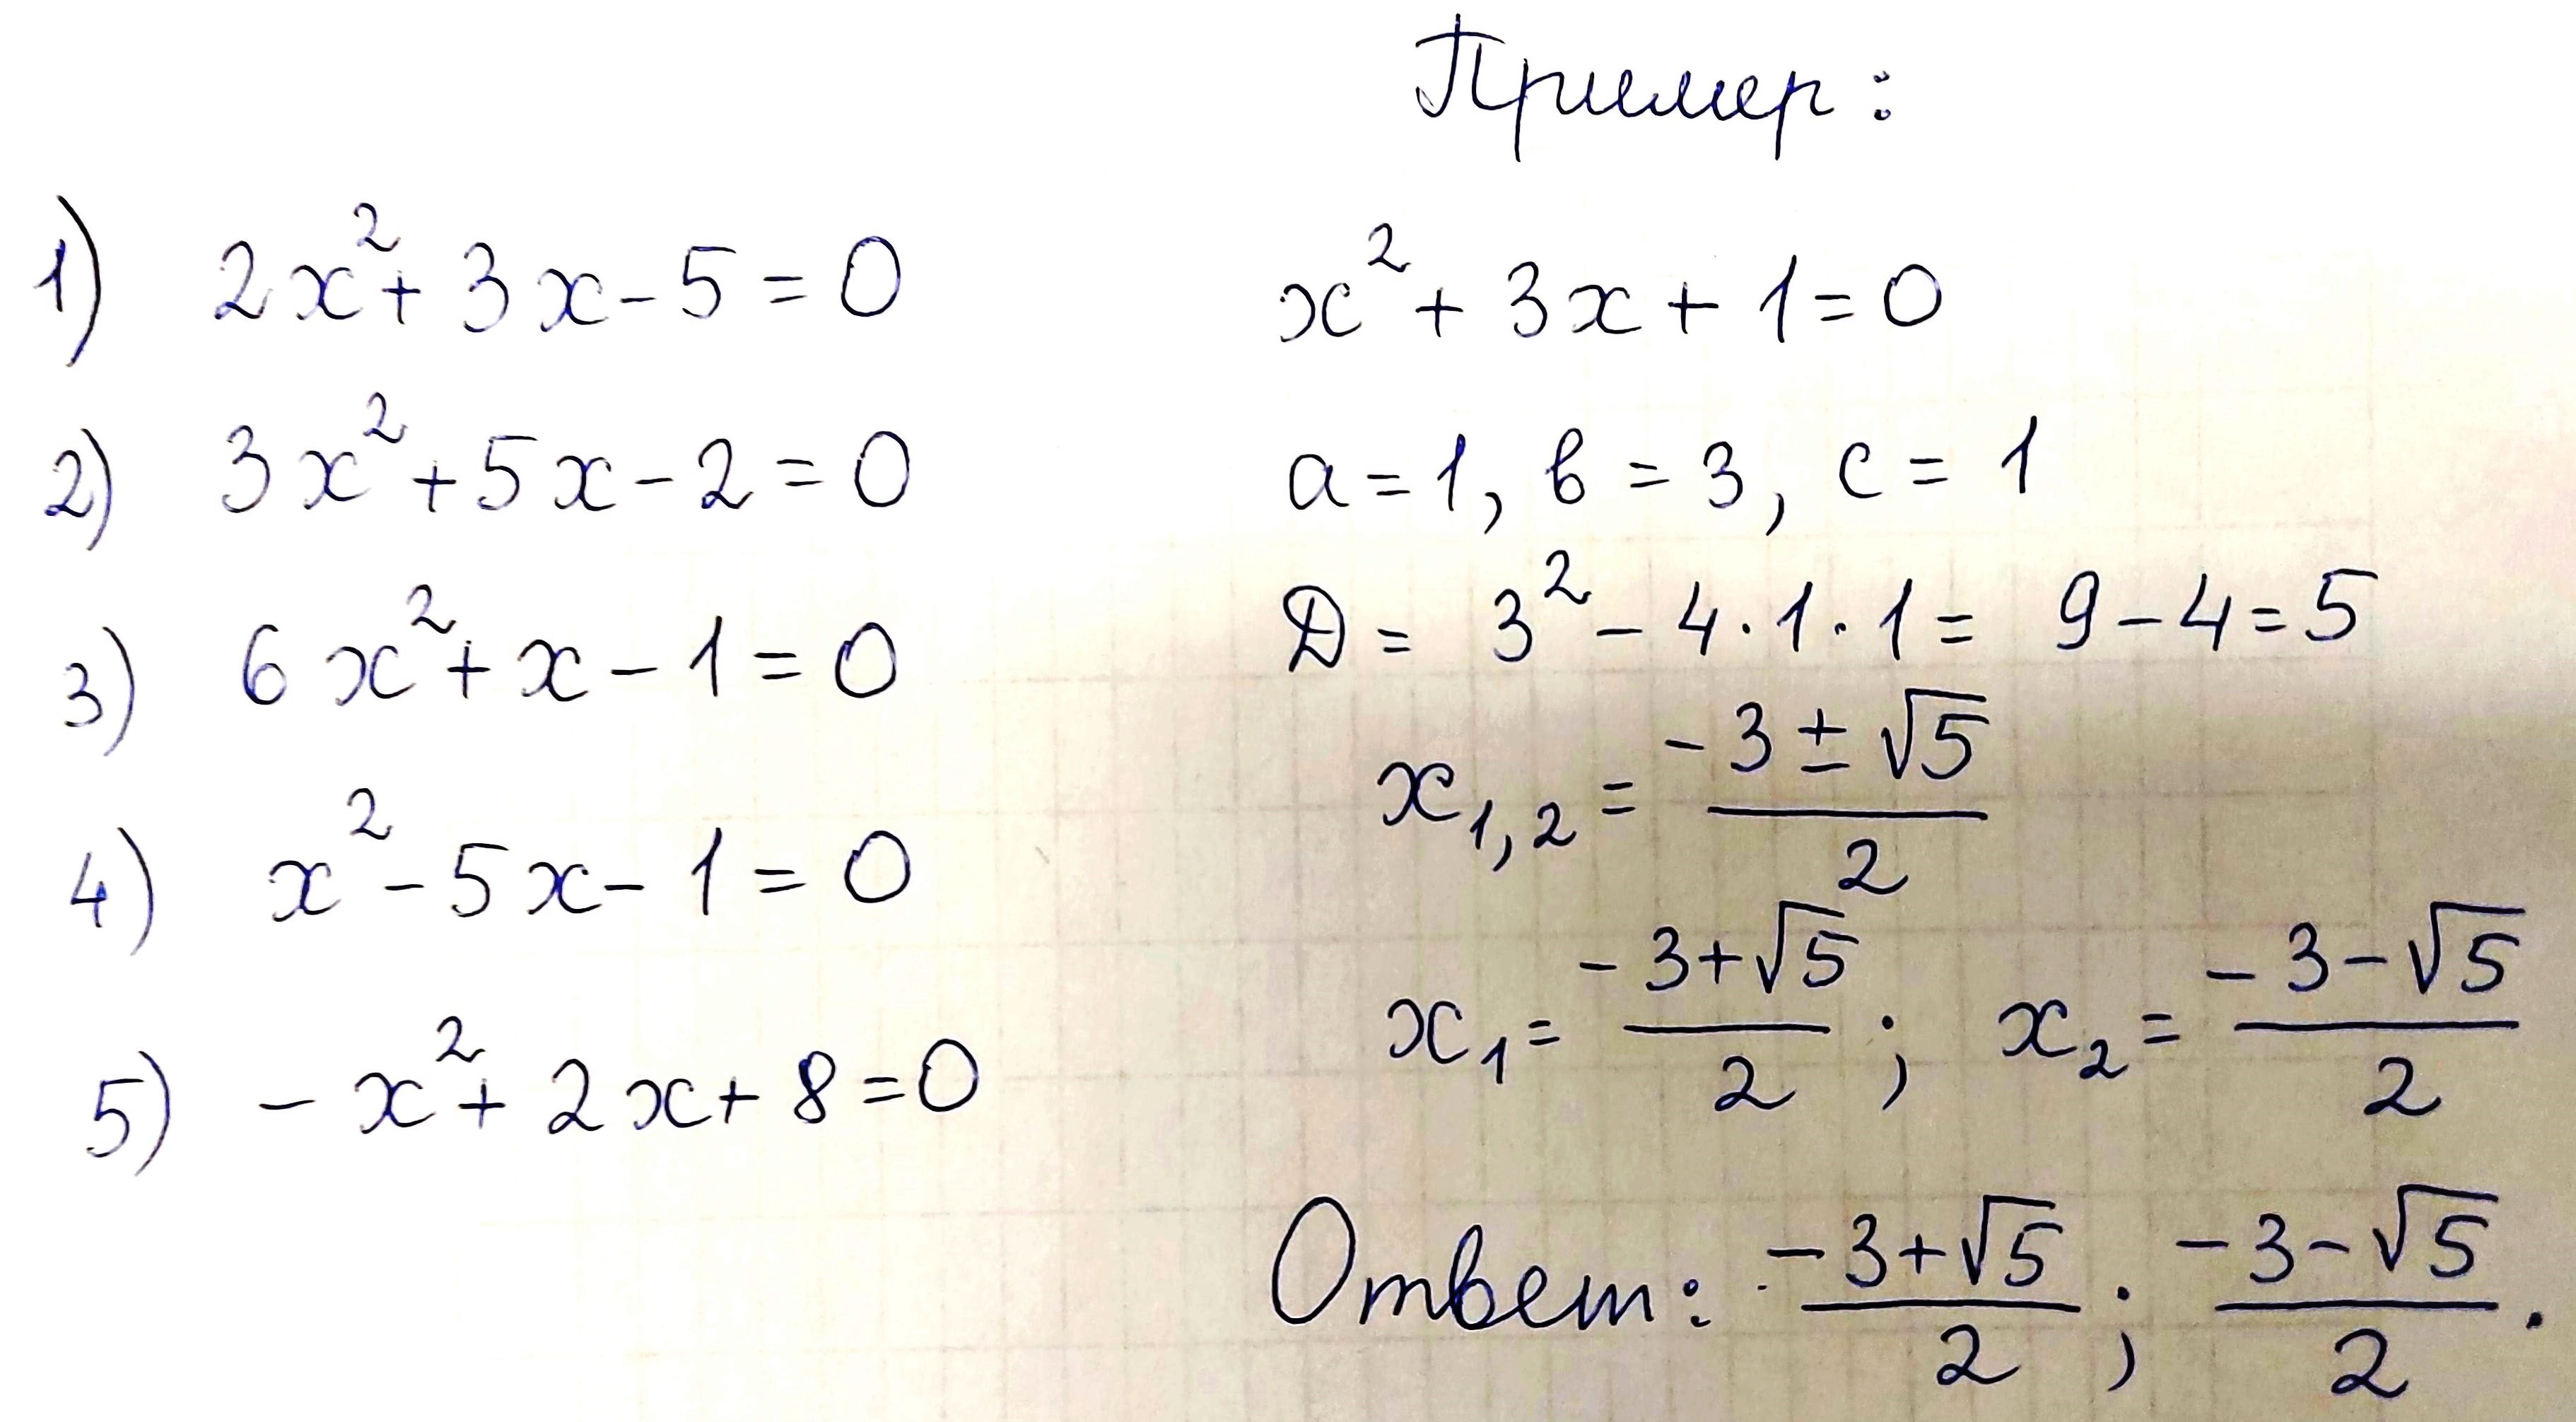 1) 2x² + 3x - 5 = 0
2) 3x² + 5x - 2 = 0
3) 6x² + x - 1 = 0
4) x² - 5x - 1 = 0
5) - x² + 2x + 8 = 0
Пример:
x² + 3x + 1 = 0
a = 1, в = 3, c = 1
D = 3² - 4 · 1 · 1 = 9 - 4 = 5
x₁,₂ = (-3 ± √5)/2
x₁ = (-3 + √5)/2 ; x₂ = (-3 - √5)/2
Ответ: (-3 + √5)/2 ; (-3 - √5)/2 .